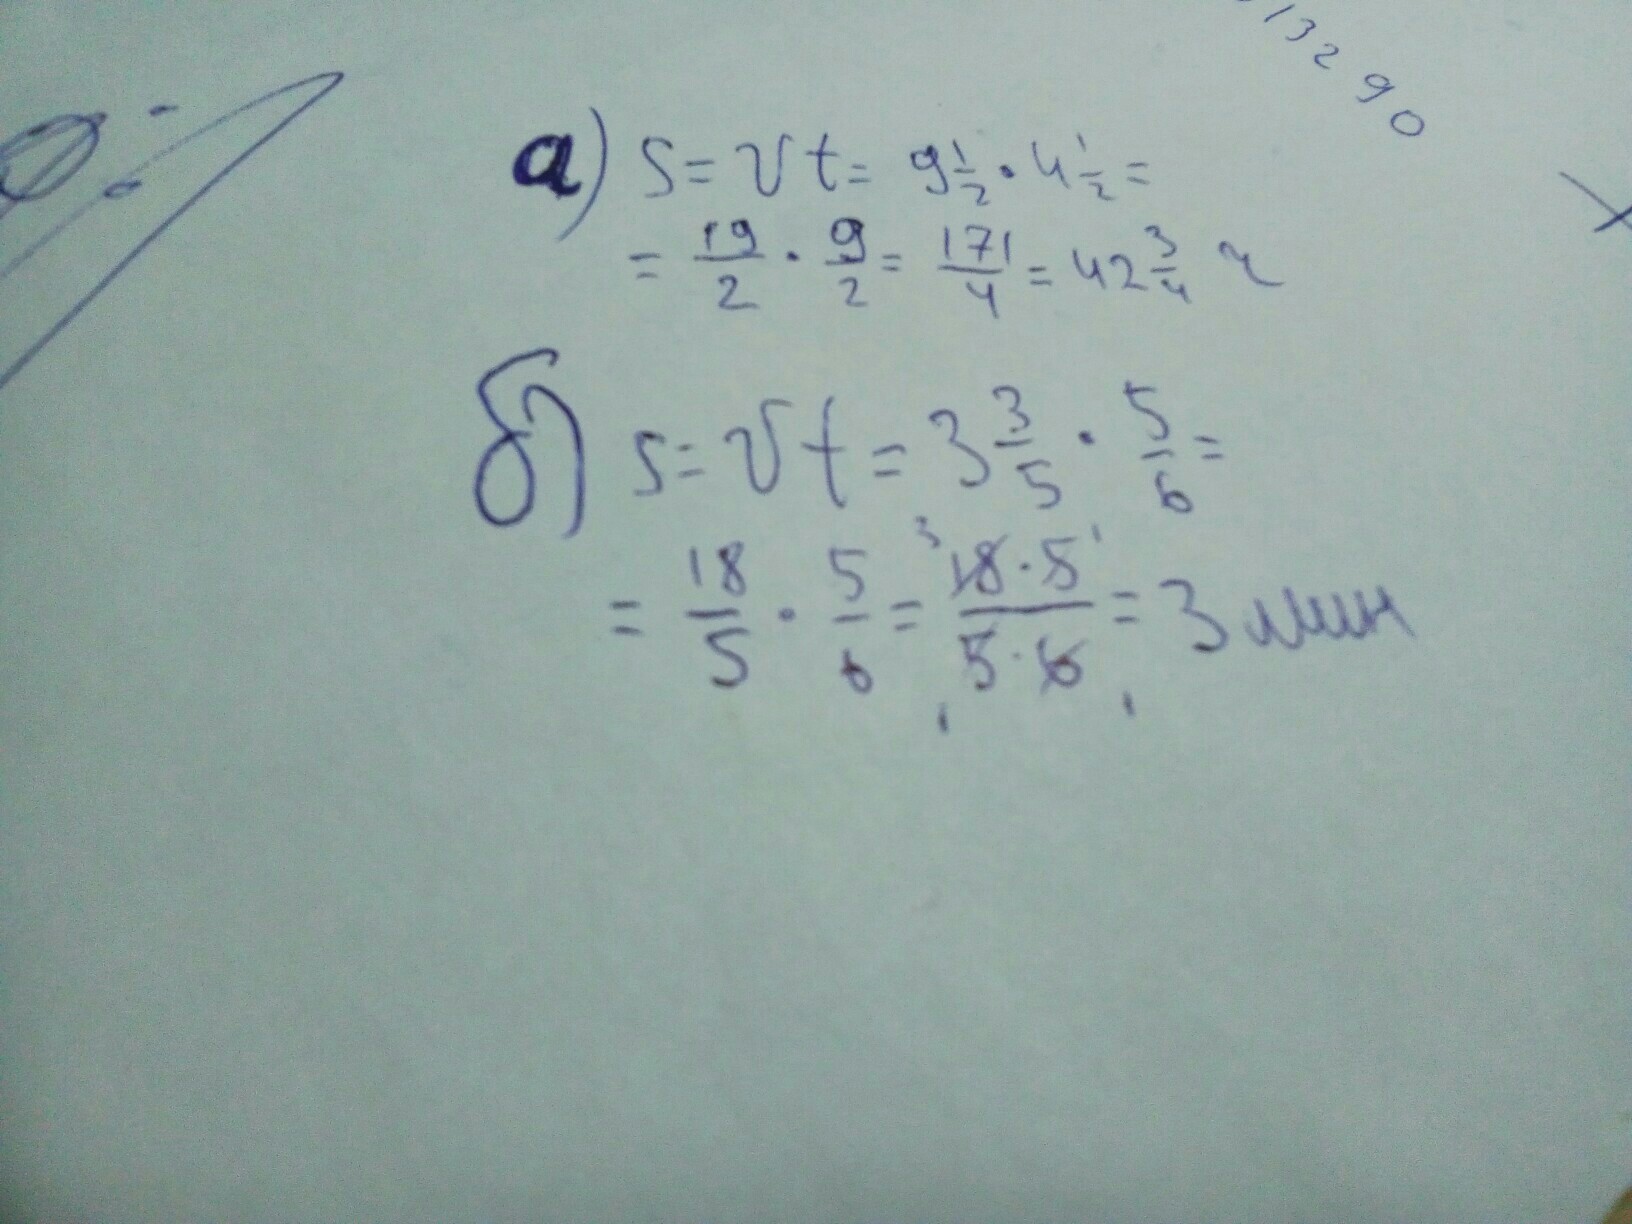 13290
а) S = Vt = 9 1/2 · 4 1/2 =
= 19/2 · 9/2 = 171/4 = 42 3/4 ч
б) S = Vt = 3 3/5 · 5/6 =
= 18/5 · 5/6 = 3 18·5 1 / 1 5·6 1 = 3 мин